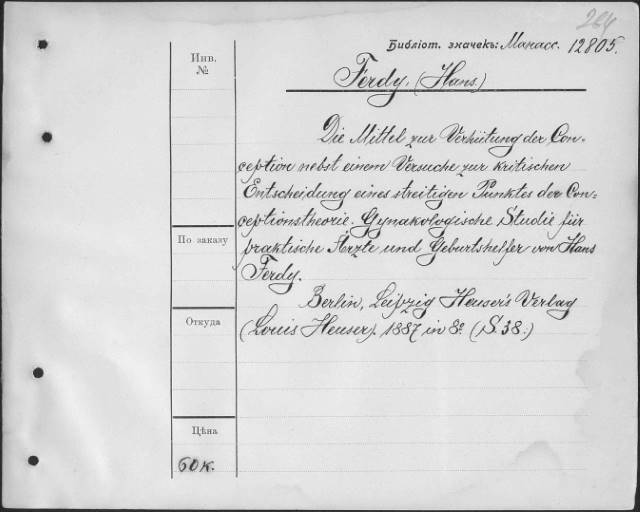 264
Библіот. значекъ: Манасс. 12805.
Инв.
№
Ferdy. (Hans.)
Die Mittel zur Verhütung der Con-
ception nebst einem Versuche zur kritischen
Entscheidung eines streitigen Punktes der Con-
ceptionstheorie. Gynäkologische Studie für
praktische Ärzte und Geburtshelfer von Hans
Ferdy.
По заказу
Berlin, Leipzig Heuser's Verlag
(Louis Heuser). 1887 in 8º. (S. 38.)
Откуда
Цѣна
60 к.